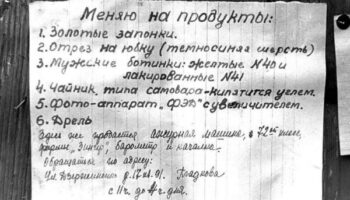 Меняю на продукты:
1. Золотые запонки.
2. Отрез на юбку (темносиняя шерсть)
3. Мужские ботинки: желтые №40 и
лакированные №41
4. Чайник типа самовара-кипятится углем.
5. Фото-аппарат „ФЭД" с увеличителем.
6. Дрель
Здесь же продается ажурная машинка,
фирмы „Зингер", барометр и качалка.
Обращаться по адресу:
Ул. Дзержинского д. 17 кв. 91. Гладкова